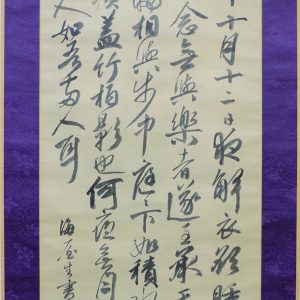 年十月十二日夜解衣欲睡
念無與樂者遂至承天
相與步中庭下如積水
橫蓋竹柏影也何
人如吾兩人耳
海屋生書